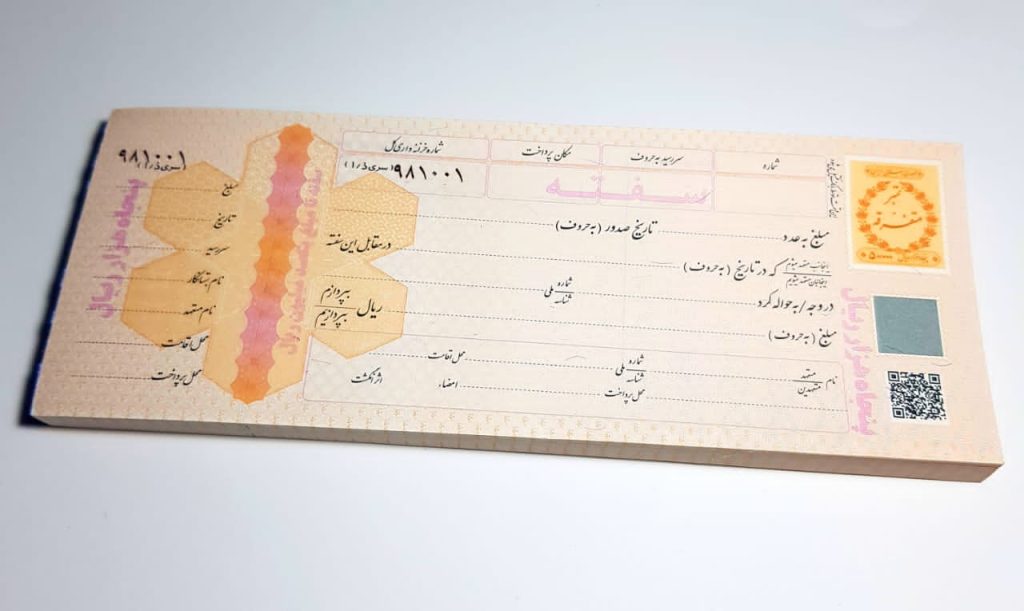 شماره
سررسید به حروف
مکان پرداخت
شماره خزانه داری کل
۹۸۱۰۰۱ (سری ذ/۱)
سفته
مبلغ به عدد
تاریخ صدور (به حروف)
در مقابل این سفته
که در تاریخ (به حروف)
در وجه / به حواله کرد
شماره ملی
شناسه
مبلغ (به حروف)
ریال
بپردازم
بپردازیم
نام متعهد
متعهدین
شماره ملی
شناسه
محل اقامت
محل پرداخت
امضاء
اثر انگشت
(سری ذ/۱) ۹۸۱۰۰۱
مبلغ
تاریخ
سررسید
نام متعهد
محل اقامت
محل پرداخت
پنجاه هزار ریال
پنجاه هزار ریال
سفته تا مبلغ یکصد میلیون ریال
تمبر
متفرقه